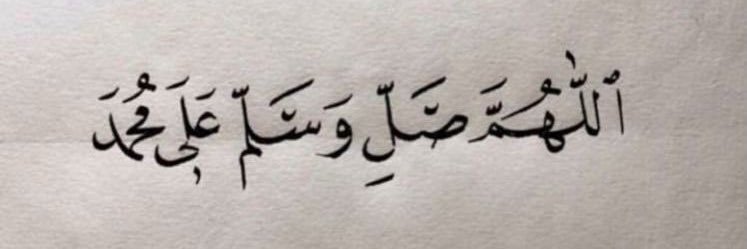 ٱللّٰهُمَّ صَلِّ وَسَلِّمْ عَلَى مُحَمَّدَ